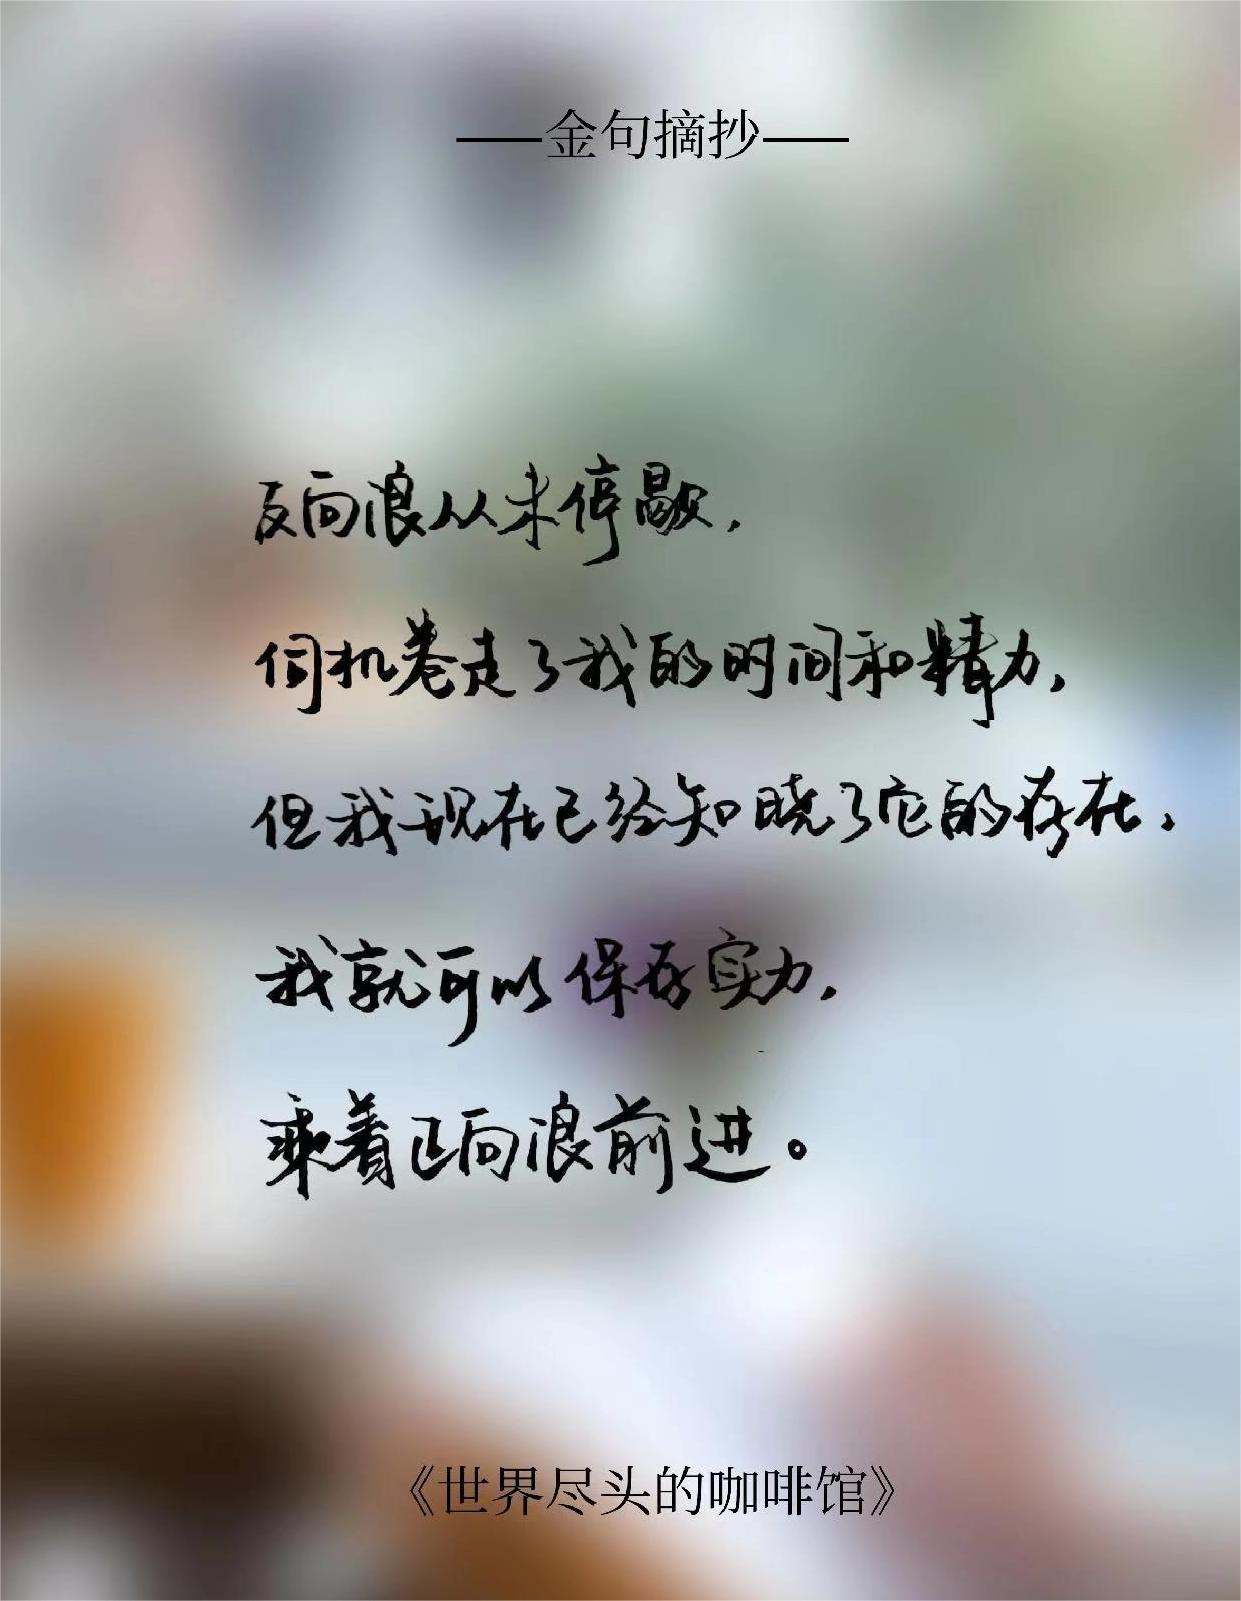 ——金句摘抄——
反向浪从未停歇,
伺机卷走了我的时间和精力,
但我现在已经知晓了它的存在,
我就可以保存实力,
乘着正向浪前进。
《世界尽头的咖啡馆》